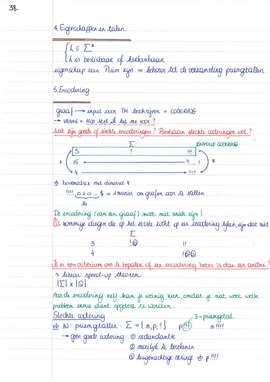 38.
4. Eigenschappen en talen
L ⊆ Σ*
L is beslisbare of herkenbare
eigenschap van Priem zijn = behoren tot de verzameling priemgetallen
5. Encodering
graaf → input voor TM beschrijven = CODERING
→ vraag = Hoe stel ik dit nu voor?
Wat zijn goede of slechte encoderingen? Bestaan slechte coderingen wel?
Σ
5
15
4
⇒ bovenstaande met dimensie 4
= manier om grafen voor te stellen
De encodering (van een graaf) moet niet uniek zijn!
sommige dingen die op het eerste zicht op een encodering lijken, zijn dat niet
Σ
3 1
4
Is er een criterium om te bepalen of een encodering beter is dan een andere?
~ linear speed-up theorem
|Σ| x |Q|
Aan de encodering zelf kan je weinig zien, omdat je niet weet welk
probleem ermee dient opgelost te worden.
Slechte codering 3 = priemgetal
vb N: priemgetallen: Σ = {n, p, 1}
→ geen goede codering: ① redundantie
② moeilijk te berekenen
③